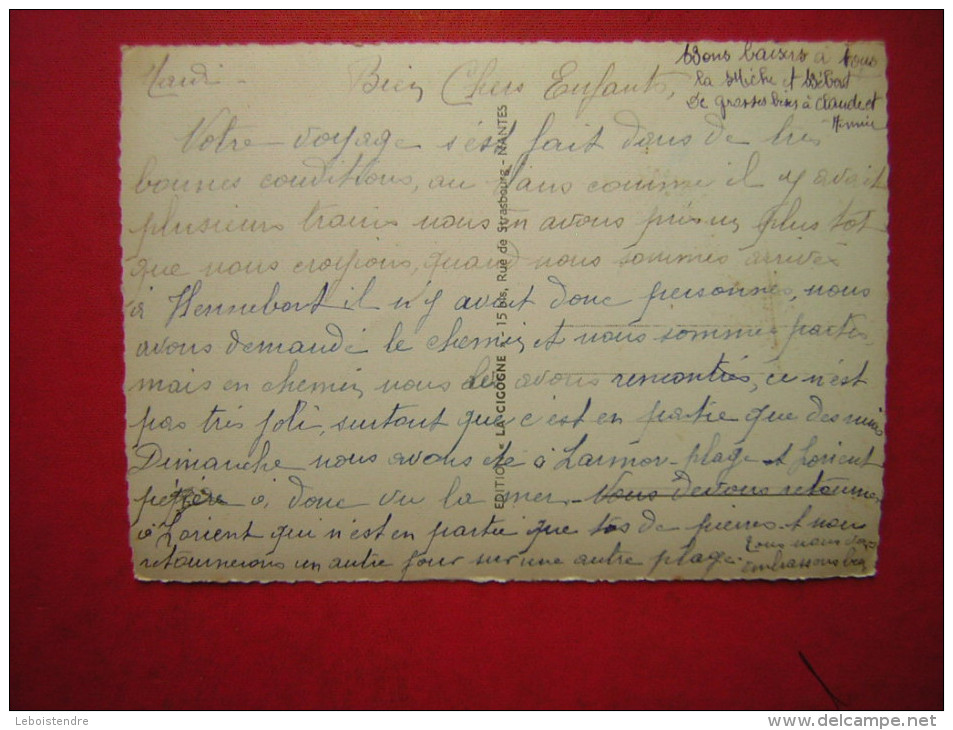 Mardi - Bien Chers Enfants,
Bons baisers à tous
la Miche et Bébert
De grosses bises à Claude et
Votre voyage s'est fait dans de très
bonnes conditions, au Mans comme il y avait
plusieurs trains nous en avons pris un plus tôt
que nous croyions, quand nous sommes arrivés
à Hennebont il n'y avait donc personnes, nous
avons demandé le chemin et nous sommes partis,
mais en chemin nous les avons rencontrés, ce n'est
pas très joli, surtout que c'est en partie que des ruines
Dimanche nous avons été à Larmor-plage et Lorient
pépère a donc vu la mer. Nous devons retourner
à Lorient qui n'est en partie que tas de pierres et nous
retournerons un autre jour sur une autre plage.
tous nous vous
embrassons bien
EDITION « LA CIGOGNE » - 15 bis, Rue de Strasbourg - NANTES
Leboistendre
www.delcampe.net